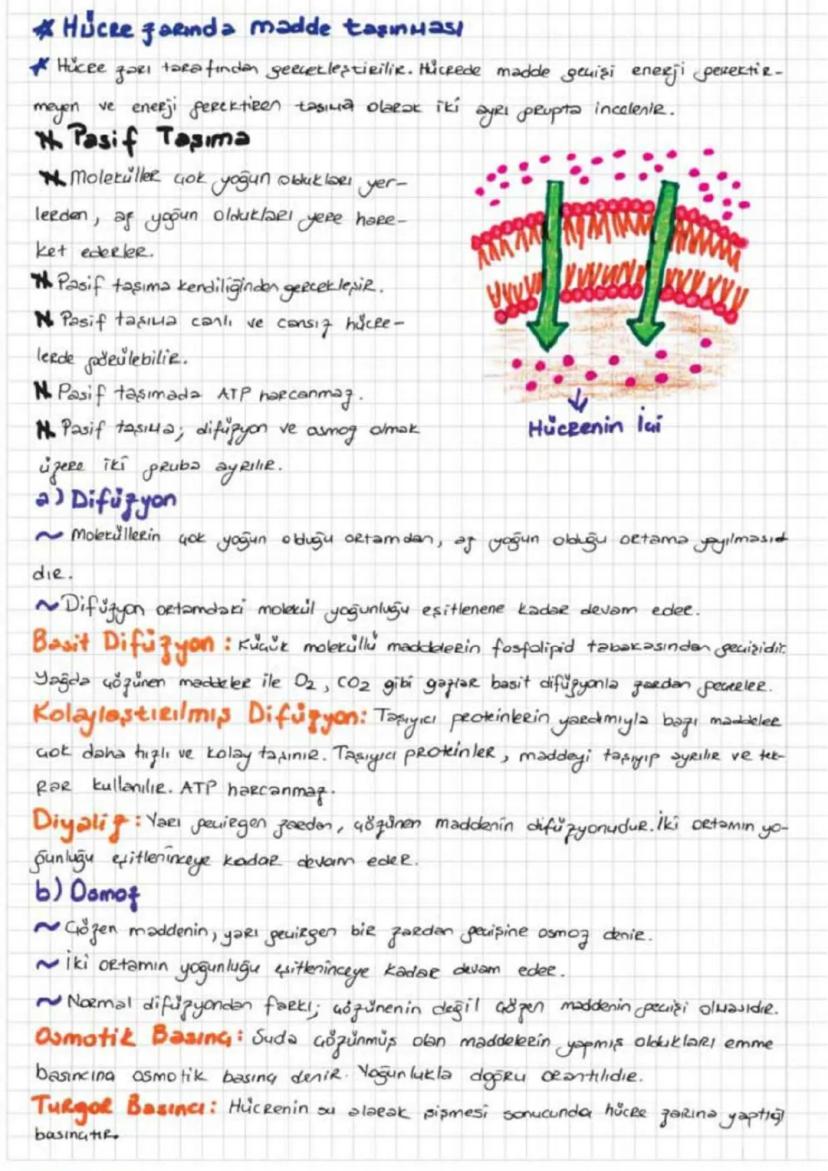 * Hücre zarında madde taşınması
* Hücre zarı tarafından gerçekleştirilir. Hücrede madde geçişi enerji gerektir-
meyen ve enerji gerektiren taşıma olarak iki ayrı grupta incelenir.
Pasif Taşıma
Moleküller çok yoğun oldukları yer-
lerden, az yoğun oldukları yere hare-
ket ederler.
Pasif taşıma kendiliğinden gerçekleşir.
Pasif taşıma canlı ve cansız hücre-
lerde görülebilir.
Pasif taşımada ATP harcanmaz.
Pasif taşıma; difüzyon ve osmoz olmak
üzere iki gruba ayrılır.
Hücrenin İçi
a) Difüzyon
~ Moleküllerin çok yoğun olduğu ortamdan, az yoğun olduğu ortama yayılmasıd
dır.
~ Difüzyon ortamdaki molekül yoğunluğu eşitlenene kadar devam eder.
Basit Difüzyon : Küçük moleküllü maddelerin fosfolipid tabakasından geçişidir.
Yağda çözünen maddeler ile O2, CO2 gibi gazlar basit difüzyonla zardan geçerler.
Kolaylaştırılmış Difüzyon: Taşıyıcı proteinlerin yardımıyla bazı maddeler
çok daha hızlı ve kolay taşınır. Taşıyıcı proteinler, maddeyi taşıyıp ayrılır ve tek-
rar kullanılır. ATP harcanmaz.
Diyaliz : Yarı geçirgen zardan, çözünen maddenin difüzyonudur. İki ortamın yo-
ğunluğu eşitleninceye kadar devam eder.
b) Osmoz
~ Çözen maddenin, yarı geçirgen bir zardan geçişine osmoz denir.
~ İki ortamın yoğunluğu eşitleninceye kadar devam eder.
~ Normal difüzyondan farkı; çözünenin değil çözen maddenin geçişi olmasıdır.
Osmotik Basınç : Suda çözünmüş olan maddelerin yapmış oldukları emme
basıncına osmotik basınç denir. Yoğunlukla doğru orantılıdır.
Turgor Basıncı : Hücrenin su alarak şişmesi sonucunda hücre zarına yaptığı
basınçtır.